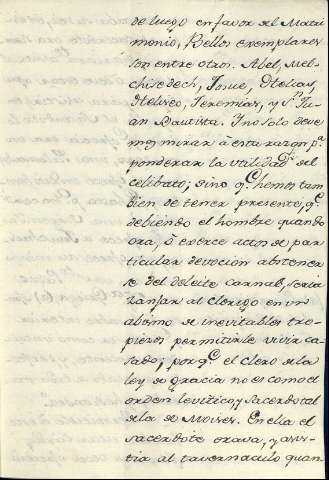 de luego en favor del Matri
monio. Bellos exemplares
son entre otros. Abel, Mel-
chisedech, Josue, Helias,
Heliseo, Jeremias, y Sn. Ju-
an Bautista. Y no solo deve
mos mirar à esta razon pa.
ponderar la utilidad del
celibato; sino qe. hemos tam
bien de tener presente, qe.
debiendo el hombre quando
ora, ò exerce actos de par
ticular devocion abstener
se del deleite carnal, seria
lanzar al Clerigo en un
abismo de inevitables tro-
piezos permitirle vivir ca-
sado; porqe. el clero de la
ley de gracia no es como el
orden levitico, y sacerdotal
de la de Moises. En ella el
sacerdote orava, y asis-
tia al tavernaculo quan-